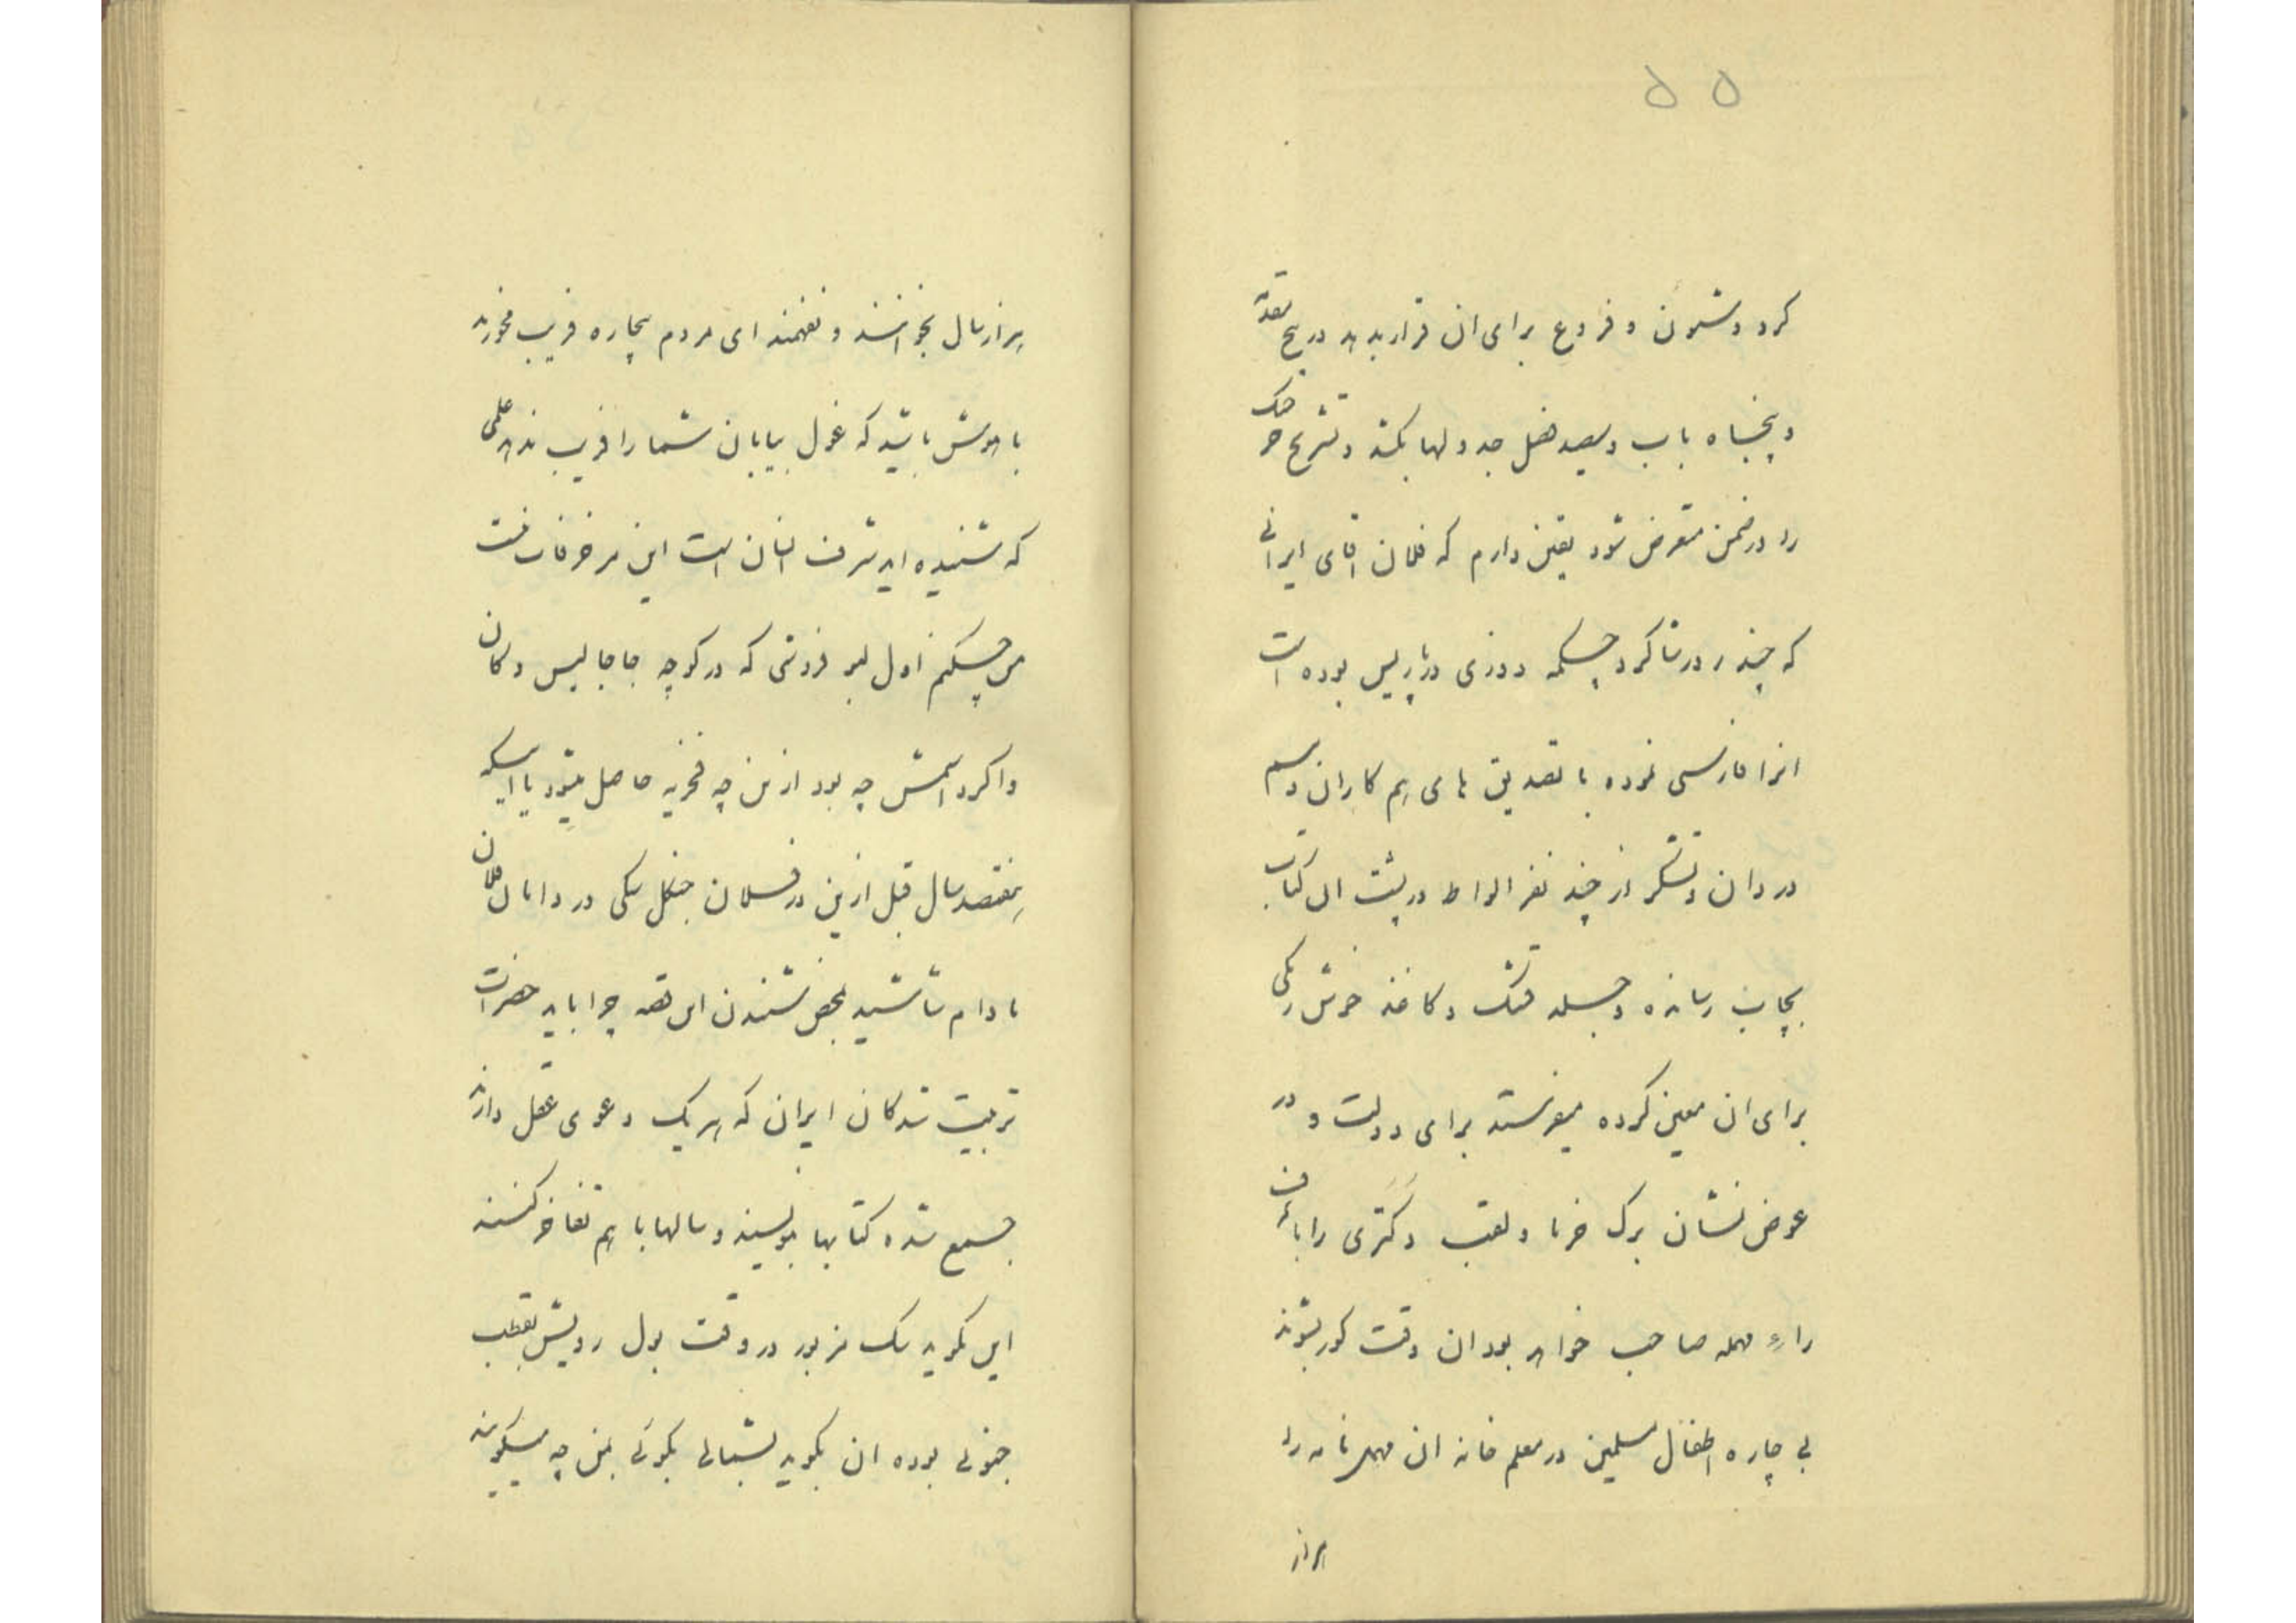 ۵۵
کرد و ستون و فروع برای ان قرار بدهد در پنج مقدمه
و پنجاه باب و سیصد فصل جدولها بکشد و تشریح خر
را در ضمن متعرض شود یقین دارم که فلان اقای ایرانی
که چند روز شاگرد چسکمه دوزی در پاریس بوده است
انرا فارسی نموده با تصدیق های هم کاران و سم
در دان و تشکر از چند نفر الواط در پشت ان کتاب
بچاپ رسانده و جلد قشنک و کاغذ خوش رنکی
برای ان معین کرده میفرستد برای دولت و در
عوض نشان برک خرما و لقب دکتری را با
راء مهمله صاحب خواهد بود ان وقت کور بشوند
بی چاره اطفال مسلمین در معلم خانه ان مهمل نامه را
هزار
هزار سال بخوانند و نفهمند ای مردم بیچاره فریب نخورید
با هوش باشید که غول بیابان شما را فریب ندهد علمی
که شنیده اید شرف انسان است این مزخرفات نیست
من چسکنم اول لبو فروشی که در کوچه جاجا لیس دکان
وا کرد اسمش چه بود از من چه فخریه حاصل میشود یا اینکه
هفتصد سال قبل ازین در فلان جنکل سکی در دامان فلان
مادام شاشید بمحض شنیدن این قصه چرا باید حضرات
تربیت شدکان ایران که هر یک دعوی عقل دارند
جمع شده کتابها بنویسند و سالها با هم تفاخر کنند
این بکوید سک مزبور در وقت بول رویش بقطب
جنوبی بوده ان بکوید بشمالی بکوئی بمن چه میکویند